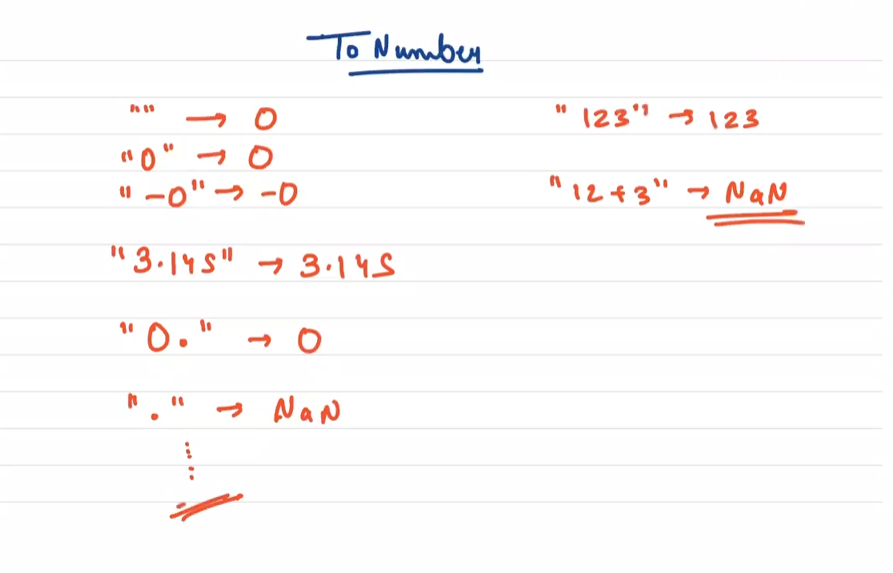 To Number
"" → 0
"0" → 0
"-0" → -0
"3.145" → 3.145
"0." → 0
"." → NaN
"123" → 123
"12+3" → NaN